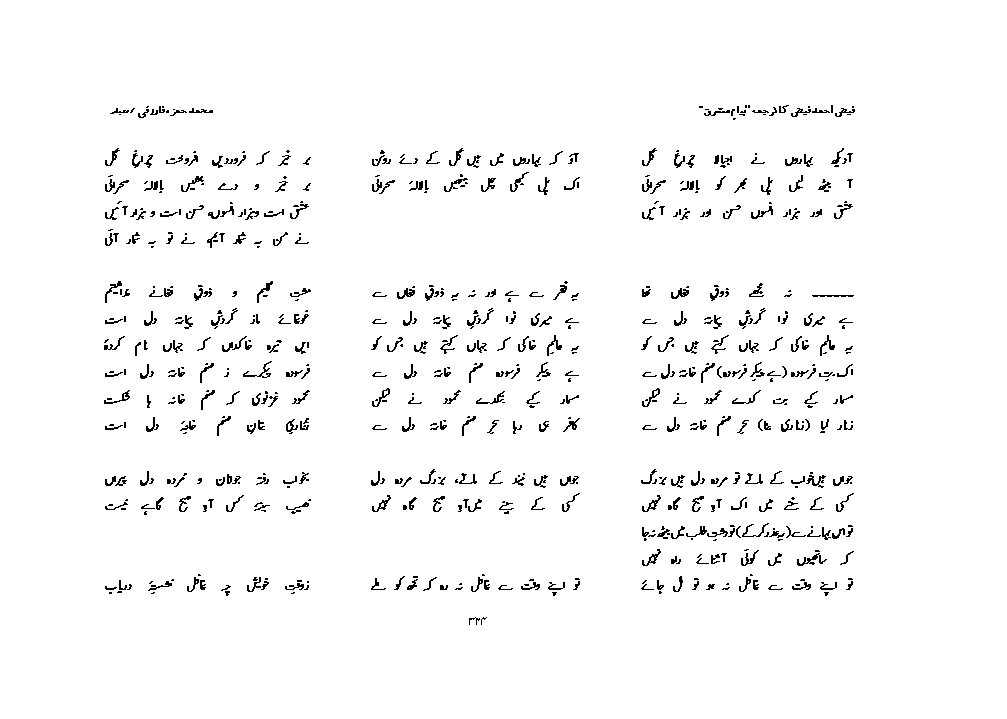 فیض احمد فیض کا ترجمہ "پیامِ مشرق"
محمد حمزہ فاروقی / معیار
آ دیکھ بہاروں نے اجالا چراغِ گل
آ بیٹھ لیں پل بھر کو بالالۂ صحرائی
عشق اور ہزار افسوں حسن اور ہزار آئیں
آؤ کہ بہاروں میں ہیں گل کے دیے روشن
اک پل کبھی چل بیٹھیں بالالۂ صحرائی
بر خیز کہ فروردیں افروخت چراغِ گل
بر خیز و دمے بنشیں بالالۂ صحرائی
عشق است و ہزار افسوں، حسن است و ہزار آئیں
نے من بہ شمار آیم، نے تو بہ شمار آئی
------ نہ مجھے ذوقِ فغاں تھا
ہے میری نوا گردشِ پیمانۂ دل سے
یہ عالمِ خاکی کہ جہاں کہتے ہیں جس کو
اک بتِ فرسودہ (ہے پیکرِ فرسودہ) صنم خانۂ دل سے
مسمار کیے بت کدے محمود نے لیکن
زنار لیا (زناری بنا) خود صنم خانۂ دل سے
یہ فقر سے ہے اور نہ یہ ذوقِ فغاں سے
ہے میری نوا گردشِ پیمانۂ دل سے
یہ عالمِ خاکی کہ جہاں کہتے ہیں جس کو
ہے پیکرِ فرسودہ صنم خانۂ دل سے
مسمار کیے بتکدے محمود نے لیکن
کافر ہی رہا خود صنم خانۂ دل سے
کلیم و ذوقِ فغانے
غوغائے ما ز گردشِ پیمانۂ دل است
ایں تیرہ خاکداں کہ جہاں نام کردۂ
فرسودہ پیکرے ز صنم خانۂ دل است
محمود غزنوی کہ صنم خانہ ہا شکست
زناریِ بتانِ صنم خانۂ دل است
جواں ہیں خواب کے ماتے تو مردہ دل ہیں بزرگ
کسی کے سینے میں اک آہِ صبح گاہ نہیں
تو اس بہانے سے (یہ عذر کر کے) تو دشتِ طلب میں بیٹھ نہ جا
کہ ساتھیوں میں کوئی آشنائے راہ نہیں
تو اپنے وقت سے غافل نہ ہو تو مل جائے
جواں ہیں نیند کے ماتے، بزرگ مردہ دل
کسی کے سینے میں آہِ صبح گاہ نہیں
تو اپنے وقت سے غافل نہ رہ کہ تجھ کو ملے
بخواب رفتہ جوانان و مردہ دل پیراں
نصیبِ سینۂ کس آہِ صبح گاہے نیست
زوقتِ خویش چہ غافل نشستۂ دریاب
۳۳۴